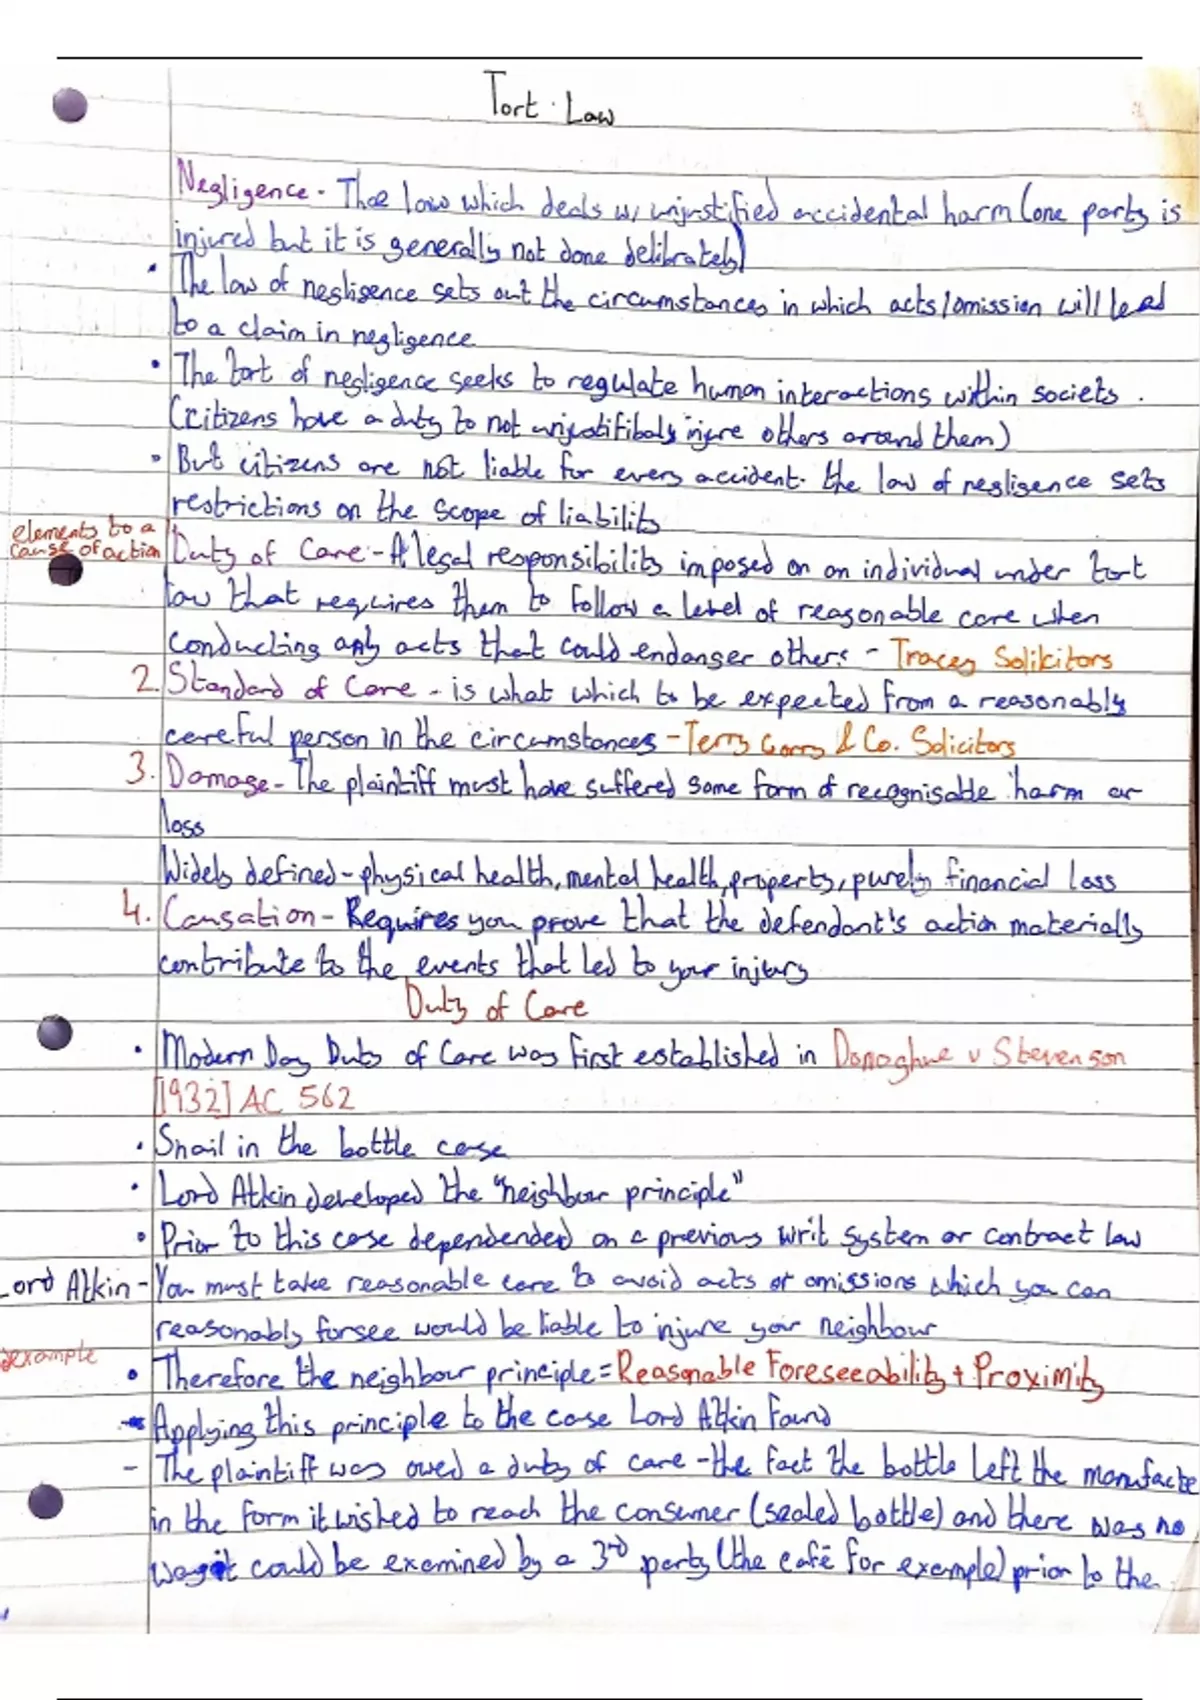 Tort Law
Negligence - The law which deals w/ unjustified accidental harm (one party is
injured but it is generally not done delibrately)
• The law of negligence sets out the circumstances in which acts/omission will lead
to a claim in negligence
• The tort of negligence seeks to regulate human interactions within society.
(citizens have a duty to not unjustifibaly injure others around them)
• But citizens are not liable for every accident. the law of negligence sets
restrictions on the scope of liability
elements to a
cause of action
1. Duty of Care - A legal responsibility imposed on an individual under tort
law that requires them to follow a level of reasonable care when
conducting any acts that could endanger others - Tracey Solikitors
2. Standard of Care - is what which to be expected from a reasonably
careful person in the circumstances - Terry Gorry & Co. Solicitors
3. Damage - The plaintiff must have suffered some form of recognisable harm or
loss
Widely defined - physical health, mental health, property, purely financial loss
4. Causation - Requires you prove that the defendant's action materially
contribute to the events that led to your injury
Duty of Care
• Modern Day Duty of Care was first established in Donoghue v Stevenson
[1932] AC 562
• Snail in the bottle case
• Lord Atkin developed the "neighbour principle"
• Prior to this case dependended on a previous writ system or contract law
Lord Atkin - You must take reasonable care to avoid acts or omissions which you can
reasonably forsee would be liable to injure your neighbour
example
• Therefore the neighbour principle = Reasonable Foreseeability + Proximity
- Applying this principle to the case Lord Atkin found
- The plaintiff was owed a duty of care - the fact the bottle left the manufacte
in the form it wished to reach the consumer (sealed bottle) and there was no
way it could be examined by a 3rd party (the café for example) prior to the